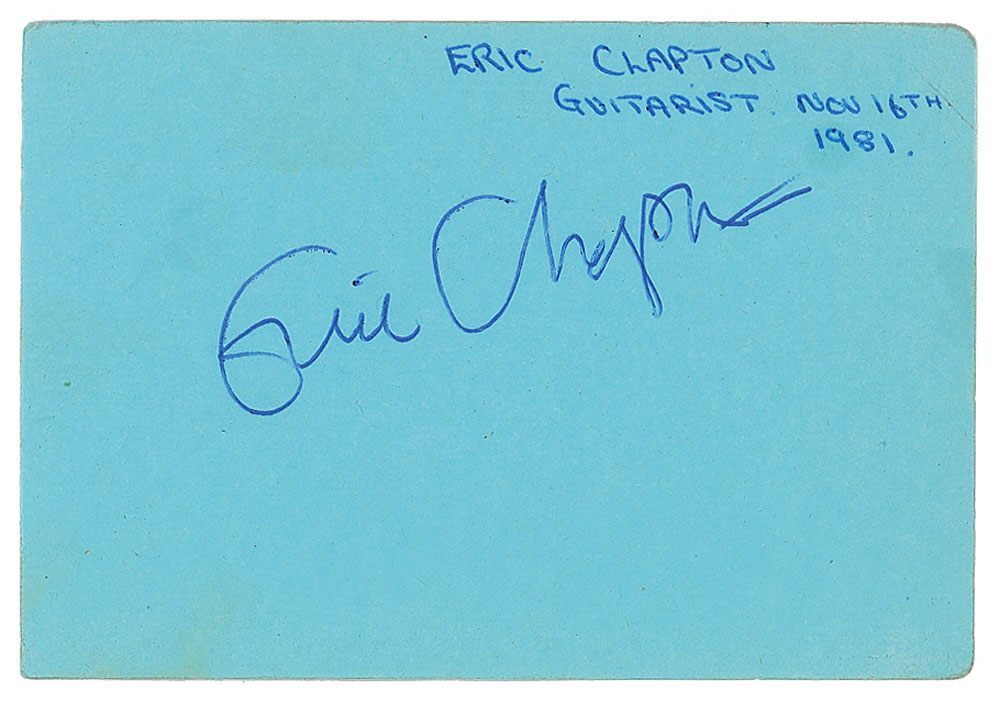 ERIC CLAPTON
GUITARIST. NOV 16TH
1981.
Eric Clapton